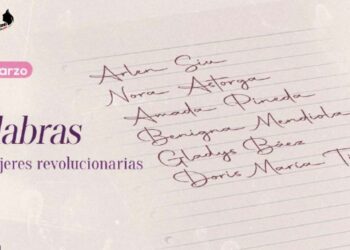 arzo
labras
jeres revolucionarias
Arlen Siu
Nora Astorga
Amada Pineda
Benigna Mendiola
Gladys Báez
Doris María Ti